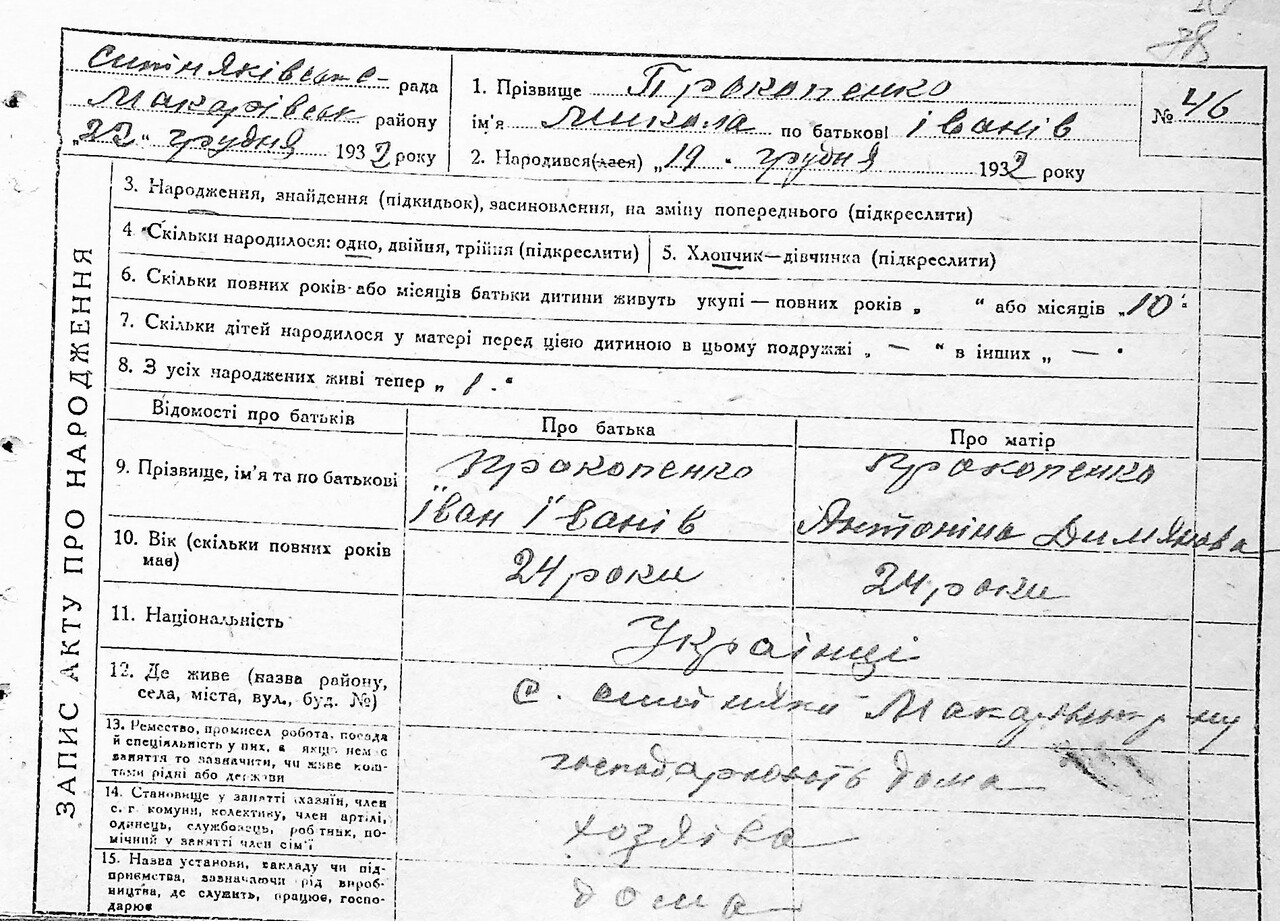 38
Ситняківське рада
Макарівськ району
„22" грудня 1932 року
1. Прізвище Прокопенко
ім'я Микола по батькові іванів
2. Народився(лася) „19 " грудня 1932 року
№ 46
ЗАПИС АКТУ ПРО НАРОДЖЕННЯ
3. Народження, знайдення (підкидьок), засиновлення, на зміну попереднього (підкреслити)
4 Скільки народилося: одно, двійня, трійня (підкреслити)
5. Хлопчик—дівчинка (підкреслити)
6. Скільки повних років або місяців батьки дитини живуть укупі — повних років „ “ або місяців „10“
7. Скільки дітей народилося у матері перед цією дитиною в цьому подружжі „ — “ в інших „ — “
8. З усіх народжених живі тепер „ 1. “
Відомості про батьків
Про батька
Про матір
9. Прізвище, ім'я та по батькові
Прокопенко
Іван Їванів
Прокопенко
Антоніна Димянова
10. Вік (скільки повних років
має)
24 роки
24 роки
11. Національність
Українці
12. Де живе (назва району,
села, міста, вул., буд. №)
с. Ситняки Макарівськ р-ну
13. Ремество, промисел робота, посада
й спеціяльність у них, а якщо нема
заняття то зазначити, чи живе кош-
тами рідні або держави
господарюють дома
14. Становище у занятті (хазяїн, член
с. г. комуни, колективу, член артілі,
одинець, службовець, робітник, по-
мічний у занятті член сім'ї
хозяїва
15. Назва установи, закладу чи під-
приємства, зазначаючи рід вироб-
ництва, де служить, працює, госпо-
дарює
дома